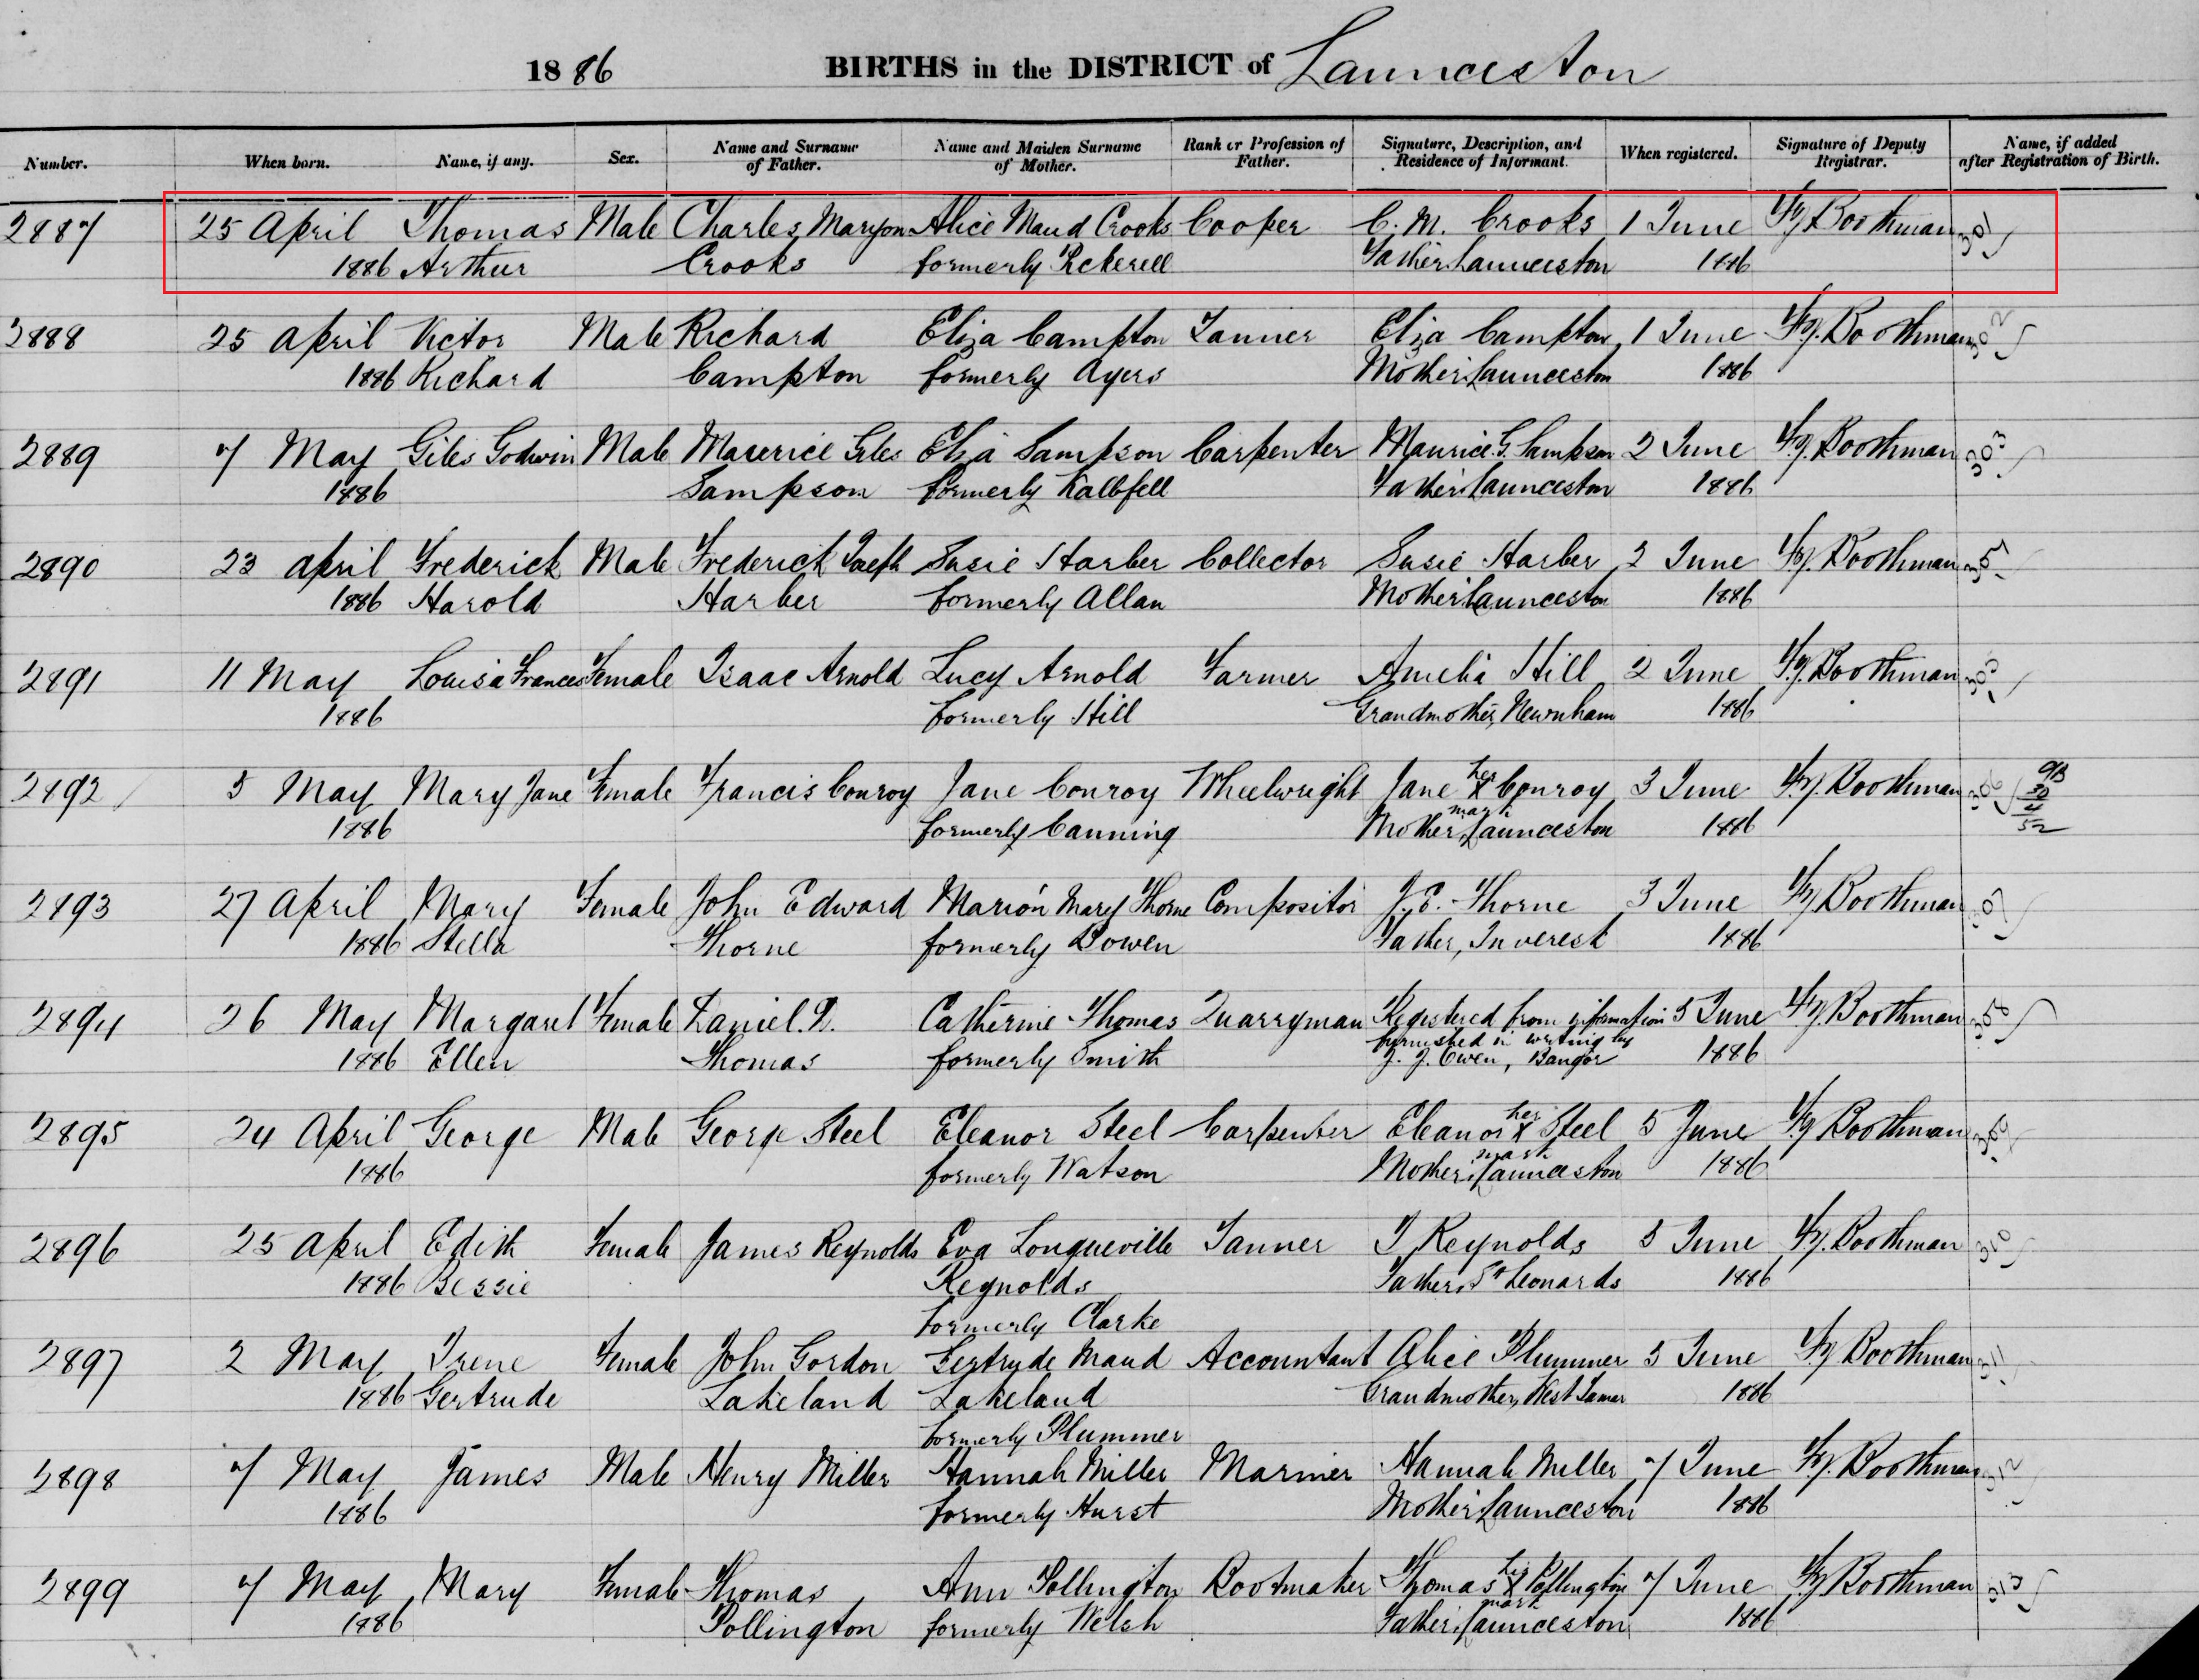 1886 BIRTHS in the DISTRICT of Launceston
Number. When born. Name, if any. Sex. Name and Surname of Father. Name and Maiden Surname of Mother. Rank or Profession of Father. Signature, Description, and Residence of Informant. When registered. Signature of Deputy Registrar. Name, if added after Registration of Birth.
2887 25 April Thomas Male Charles Maryon Alice Maud Crooks Cooper C. M. Crooks 1 June Boothman 301
1886 Arthur Crooks formerly Pickerell Father Launceston 1886
2888 25 April Victor Male Richard Eliza Campton Tanner Eliza Campton 1 June Boothman 302
1886 Richard Campton formerly Ayers Mother Launceston 1886
2889 7 May Giles Godwin Male Maurice Giles Eliza Sampson Carpenter Maurice G. Sampson 2 June Boothman 303
1886 Sampson formerly Kalbfell Father Launceston 1886
2890 23 April Frederick Male Frederick Joseph Susie Harber Collector Susie Harber 2 June Boothman
1886 Harold Harber formerly Allan Mother Launceston 1886
2891 11 May Louisa Frances Female Isaac Arnold Lucy Arnold Farmer Amelia Hill 2 June Boothman 305
1886 formerly Hill Grandmother, Newnham 1886
2892 5 May Mary Jane Female Francis Conroy Jane Conroy Wheelwright Jane her X Conroy 3 June Boothman 306
1886 formerly Canning mark Mother, Launceston 1886
2893 27 April Mary Female John Edward Marion Mary Thorne Compositor J. E. Thorne 3 June Boothman 307
1886 Stella Thorne formerly Bowen Father, Inveresk 1886
2894 26 May Margaret Female Daniel D. Catherine Thomas Quarryman Registered from information 5 June Boothman 308
1886 Ellen Thomas formerly Smith furnished in writing by 1886
J. J. Owen, Bangor
2895 24 April George Male George Steel Eleanor Steel Carpenter Eleanor her X Steel 5 June Boothman 309
1886 formerly Watson mark Mother, Launceston 1886
2896 25 April Edith Female James Reynolds Eva Longueville Tanner J Reynolds 5 June Boothman 310
1886 Bessie Reynolds Father, St Leonards 1886
formerly Clarke
2897 2 May Irene Female John Gordon Gertrude Maud Accountant Alice Plummer 5 June Boothman 311
1886 Gertrude Lakeland Lakeland Grandmother, West Tamar 1886
formerly Plummer
2898 7 May James Male Henry Miller Hannah Miller Mariner Hannah Miller 7 June Boothman 312
1886 formerly Hurst Mother Launceston 1886
2899 7 May Mary Female Thomas Ann Pollington Bootmaker Thomas his X Pollington 7 June Boothman 313
1886 Pollington formerly Welsh mark Father, Launceston 1886